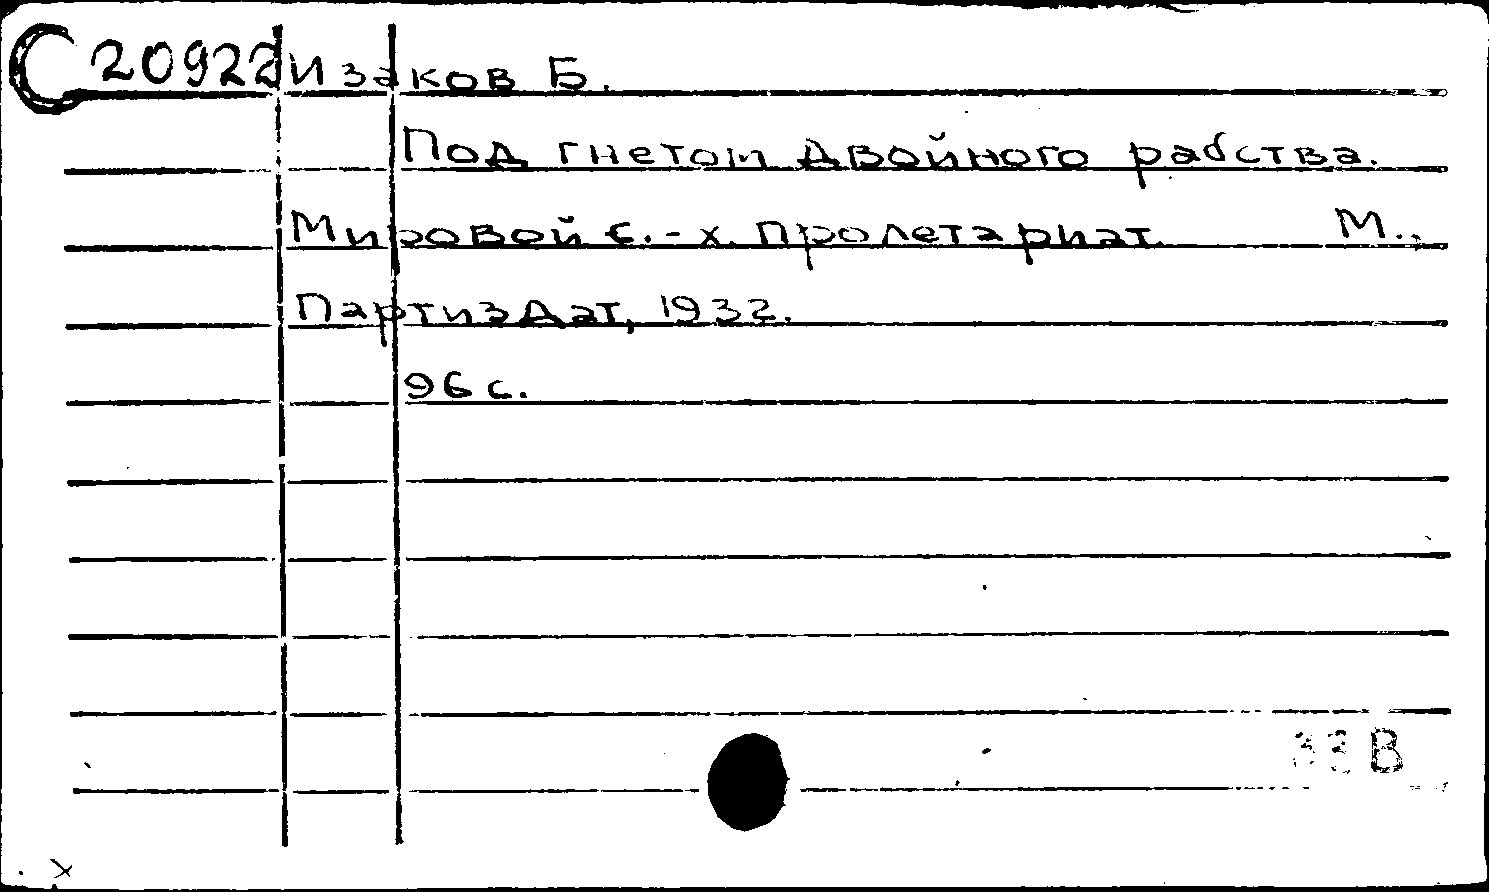 С 20922 Изаков Б.
Под гнетом двойного рабства.
Мировой с.-х. пролетариат. М.,
Партиздат, 1932.
96 с.
33В
x